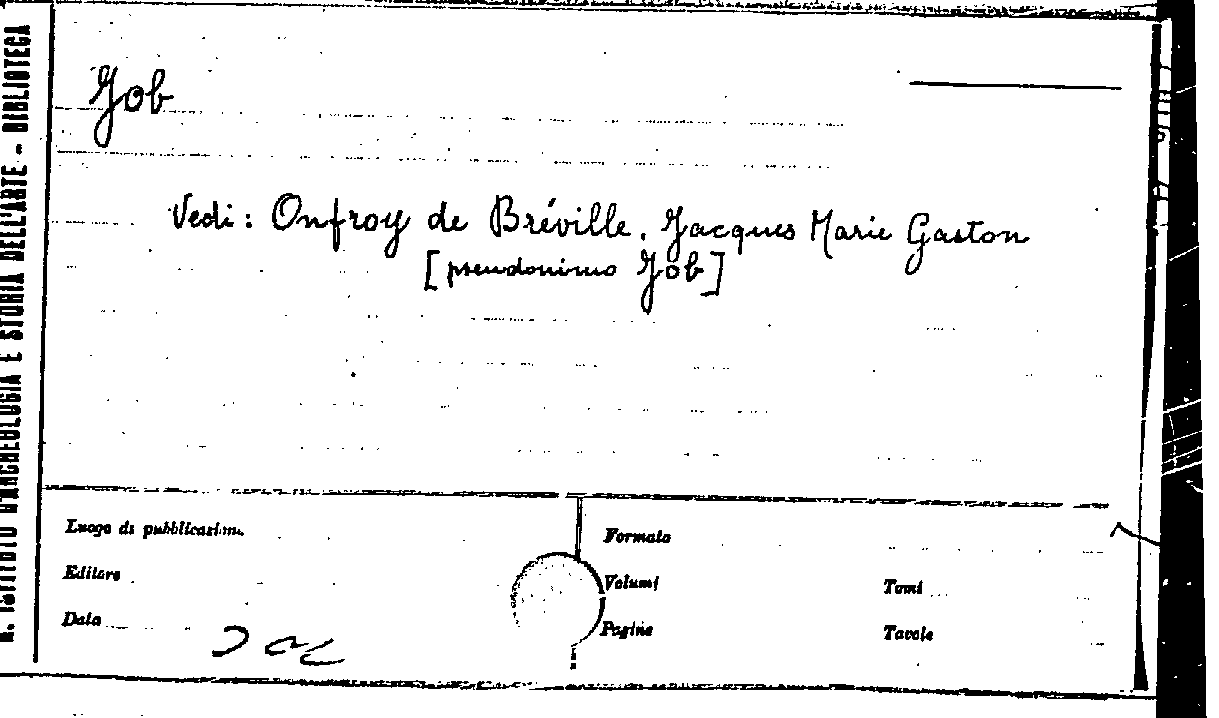 Job
Vedi: Onfroy de Bréville, Jacques Marie Gaston
[pseudonimo Job]
R. ISTITUTO D'ARCHEOLOGIA E STORIA DELL'ARTE - BIBLIOTECA
Luogo di pubblicazione
Editore
Data
Formato
Volumi
Tomi
Pagine
Tavole